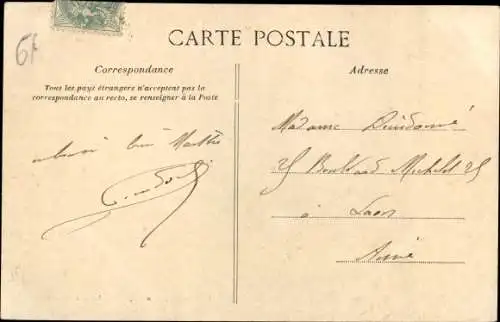 6f
CARTE POSTALE
Correspondance
Tous les pays étrangers n'acceptent pas la
correspondance au recto, se renseigner à la Poste
Adresse
Madame Dieudonné
25 Boulevard Michelet 25
à Laon
Aisne